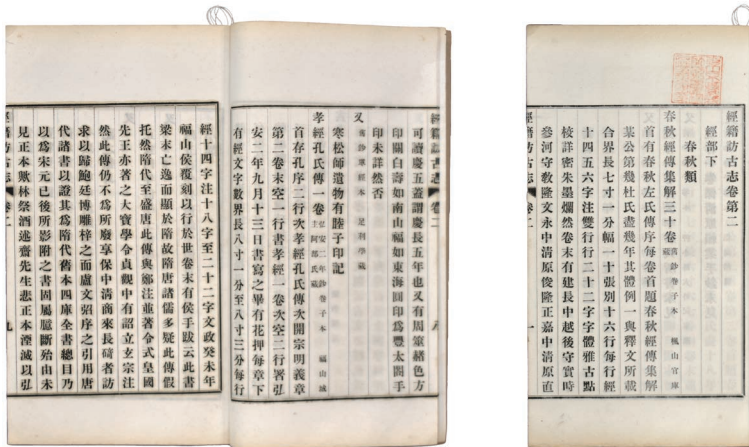 經籍訪古志卷第二
經部下
春秋類
春秋經傳集解三十卷 舊鈔卷子本 楓山官庫藏
首有春秋左氏傳序每卷首題春秋經傳集解
某公第幾杜氏盡幾年其體例一與釋文所載
合界長七寸一分幅一十張別十六行每行經
十四五六字注雙行行二十二字字體雅古點
校詳密朱墨爛然卷末有建長中越後守實時
參河守教隆文永中清原俊隆正嘉中清原直
經籍訪古志 卷二 一
經籍訪古志 卷二 八
可讀慶五蓋謂慶長五年也又有周篆緒色方
印關白壽如南山福如東海圓印爲豐太閤手
印未詳然否
又 舊鈔單經本 足利學藏
寒松師遺物有睦子印記
孝經孔氏傳一卷 弘安二年鈔卷子本 福山城主阿部氏藏
首存孔序二行次孝經孔氏傳次開宗明義章
第二卷末空一行書孝經一卷次空二行署弘
安二年九月十三日書寫之畢有花押每章下
有經文字數界長八寸一分至八寸三分每行
經十四字注十八字至二十二字文政癸未年
福山侯覆刻以行於世卷末有侯手跋云此書
梁末亡逸而顯於隋故隋唐諸儒多疑此傳假
托然隋代至盛唐此傳與鄭注並著令式皇國
先王亦著之大寶學令貞觀中有詔立玄宗注
然此傳仍不爲所廢享保中清商來長碕者訪
求以歸鮑廷博雕梓之而盧文弨序之引用唐
代諸書以證其爲隋代舊本四庫全書總目乃
以爲宋元已後所影附之書固屬臆斷殆由未
見正本歟林祭酒述齋先生悲正本湮滅以弘
經籍訪古志 卷二 九